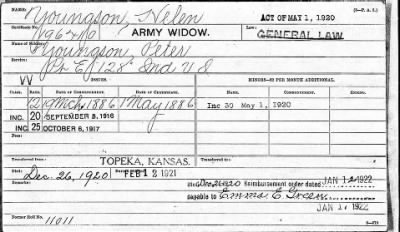 NAME: Youngson, Helen (3—P. A. 5.)
Certificate No. ARMY WIDOW. ACT OF MAY 1, 1920
GENERAL LAW
Name of Soldier: Youngson, Peter
Service: Pr E, 128" Ind U S
W ISSUE. MINORS—$2 PER MONTH ADDITIONAL.
CLASS. RATE. DATE OF COMMENCEMENT. DATE OF CERTIFICATE. RATE. DATE OF COMMENCEMENT. DATE OF CERTIFICATE.
12 Mch, 1886 1 May 1886 Inc 30 May 1, 1920
INC. 20 SEPTEMBER 8, 1916
INC 25 OCTOBER 6, 1917
Transferred from TOPEKA, KANSAS. Transferred to
Died Dec. 26, 1920 FEB 12 1921 Reimbursement order dated JAN 12 1922
payable to Emma E. Green
JAN 17 1922
Former Roll No. 11011